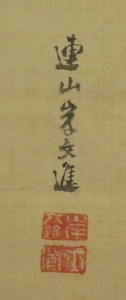 連山岸文進